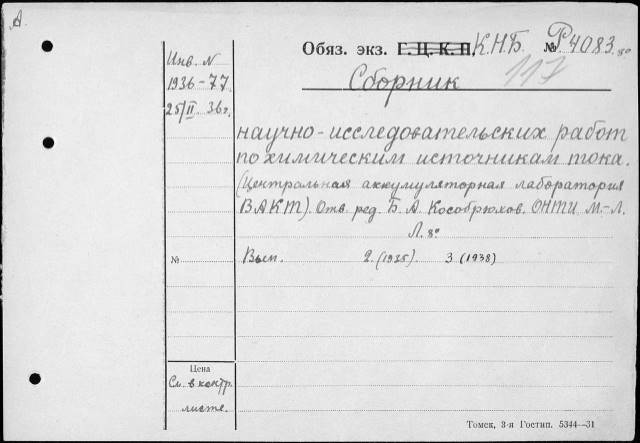 А.
Обяз. экз. Г. Ц. К. П. К.Н.Б. № Р4083. 80
Инв. N
1936-77
25/II 36 г.
Сборник 117
научно-исследовательских работ
по химическим источникам тока.
(Центральная аккумуляторная лаборатория
ВАКТ). Отв. ред. Б. А. Кособрюхов. ОНТИ М.-Л.
Л. 8°
№
Вып. 2. (1935) 3. (1938)
Цена
См. в контр.
листе.
Томск, 3-я Гостип. 5344—31